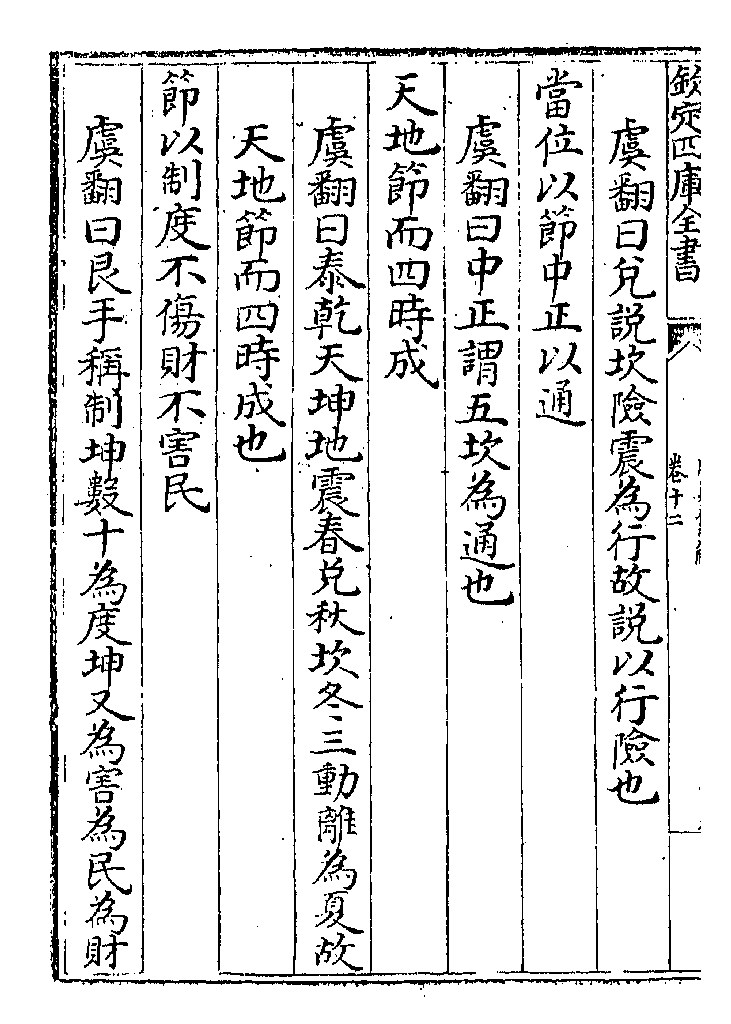 欽定四庫全書
卷十二
虞翻曰兌説坎險震為行故説以行險也
當位以節中正以通
虞翻曰中正謂五坎為通也
天地節而四時成
虞翻曰泰乾天坤地震春兌秋坎冬三動離為夏故
天地節而四時成也
節以制度不傷財不害民
虞翻曰艮手稱制坤數十為度坤又為害為民為財